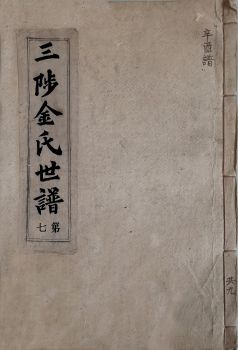 辛酉譜
共九
三陟金氏世譜
第七